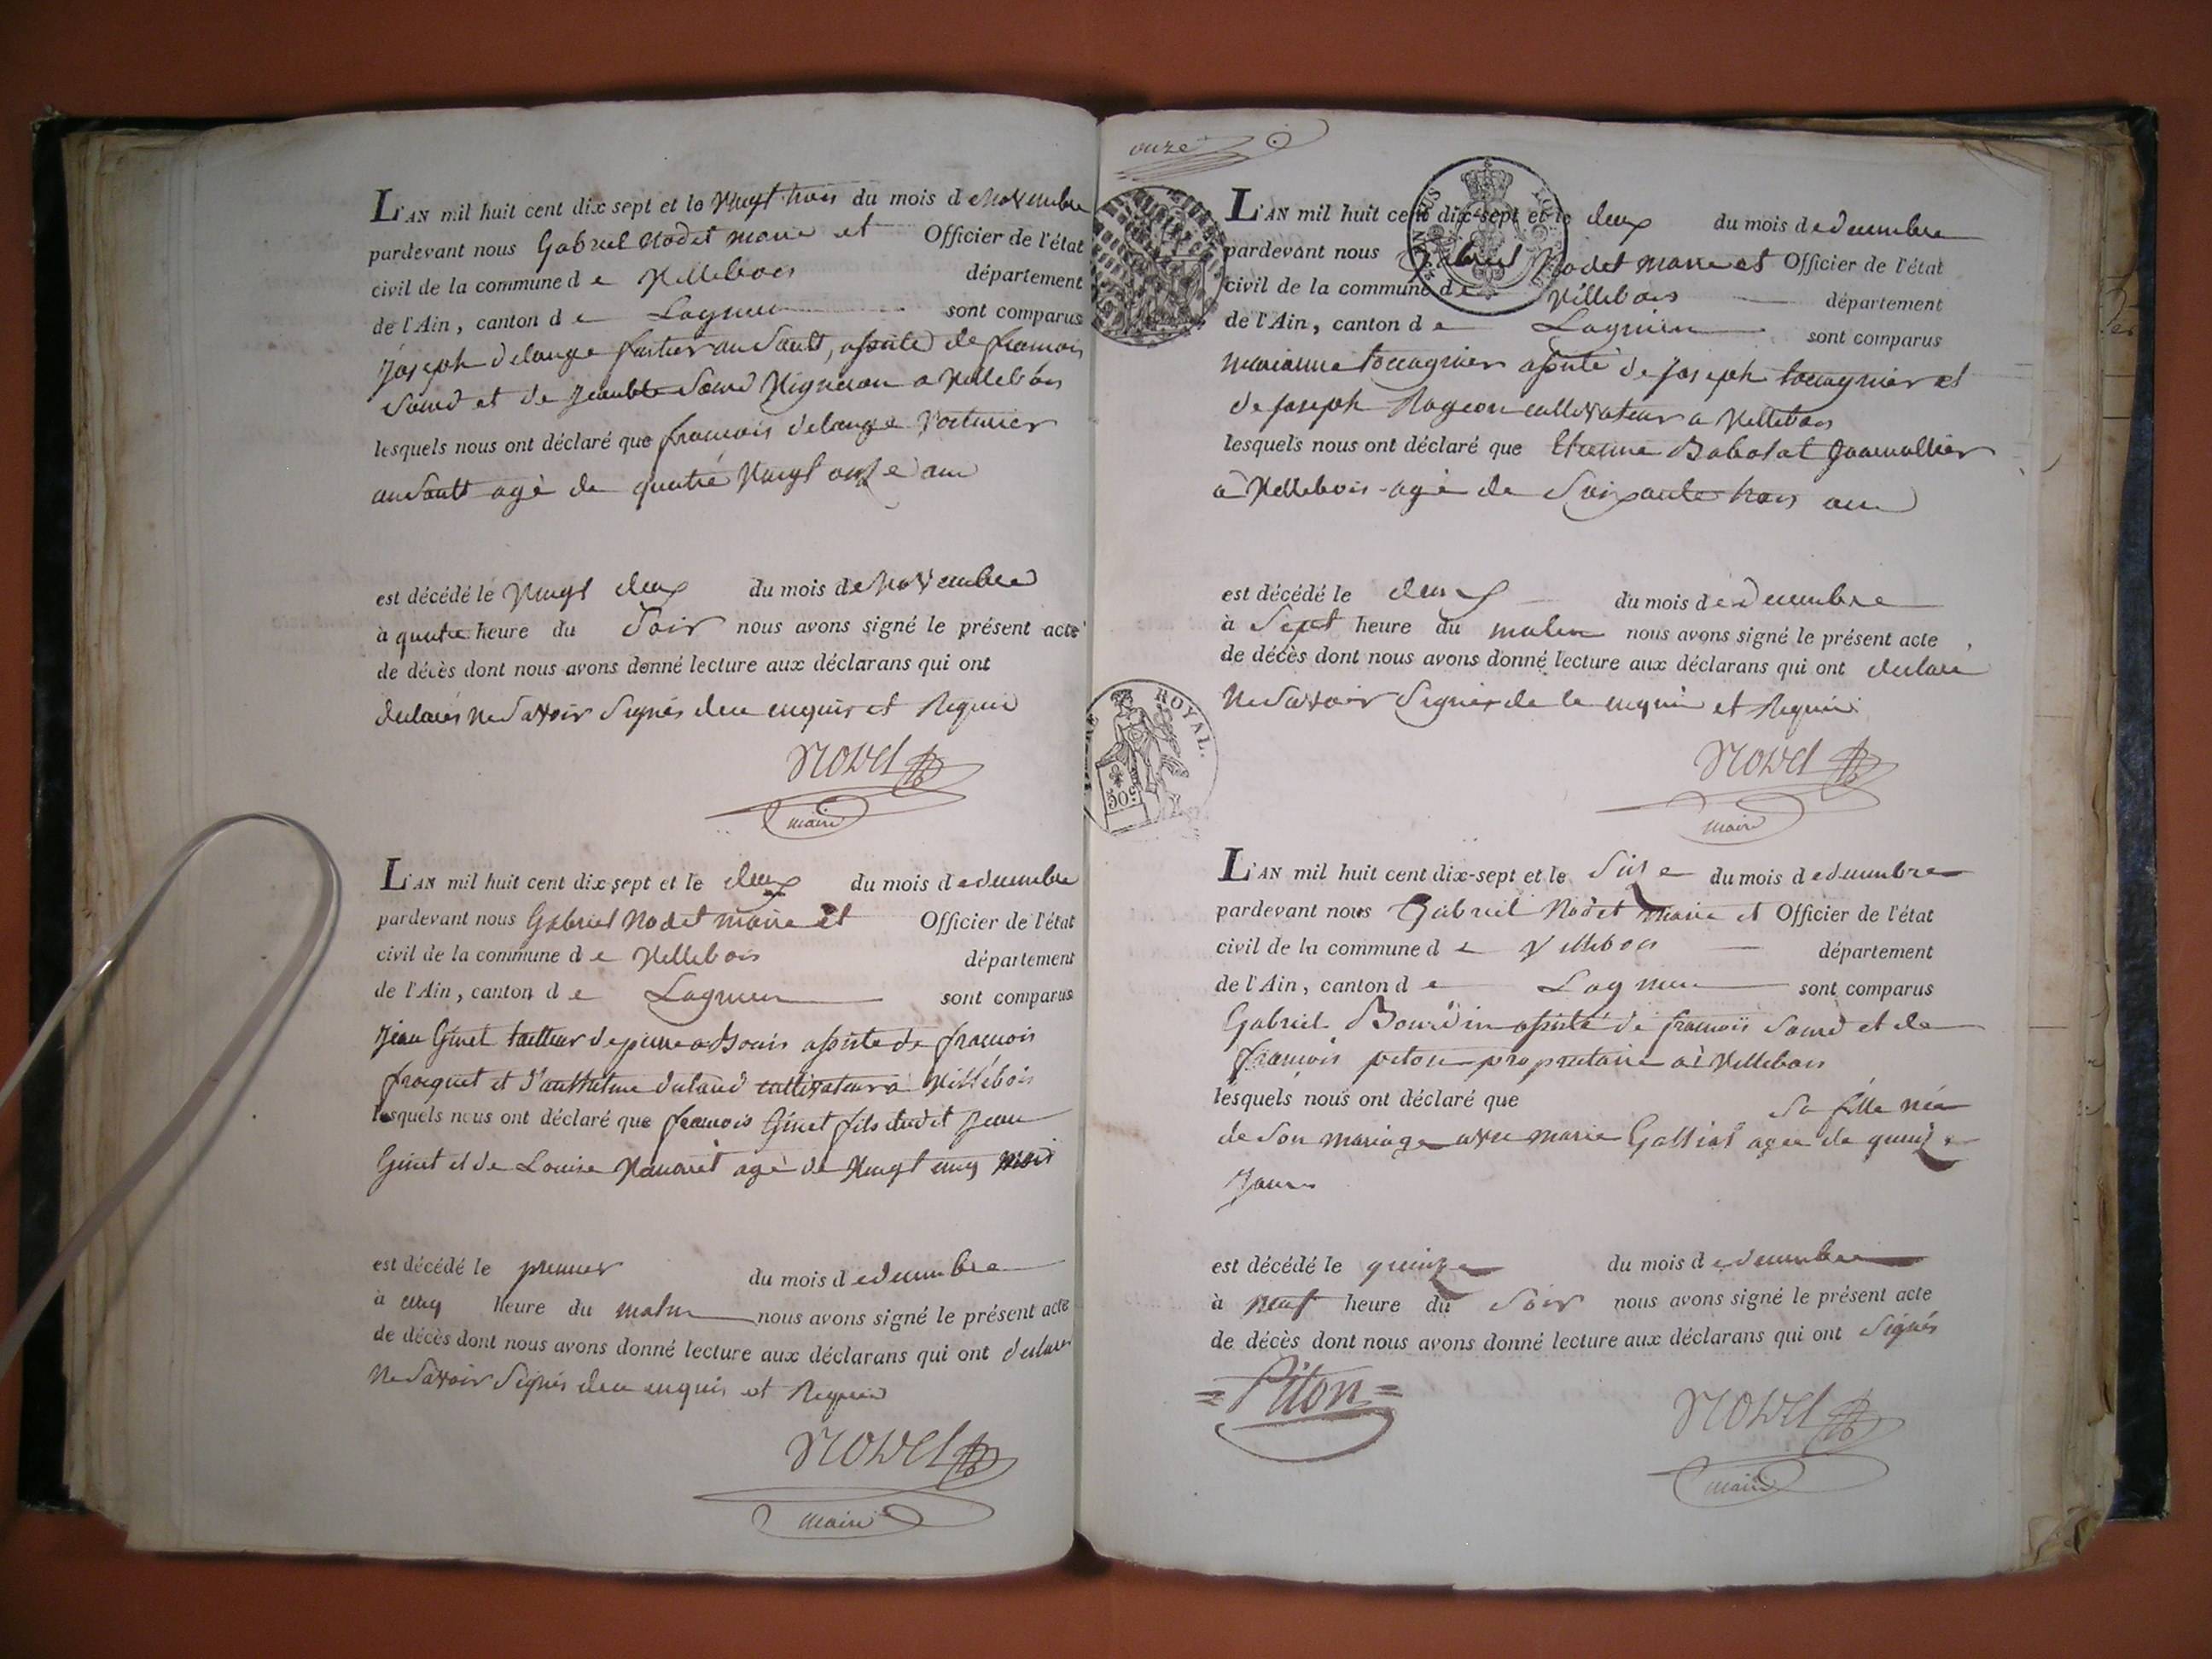 L'AN mil huit cent dix sept et le Vingt trois du mois de Novembre
pardevant nous Gabriel Nodet maire et Officier de l'état
civil de la commune de Villebois département
de l'Ain, canton de Lagnieu sont comparus
Joseph delange au Sault, assisté de francois
Sourd et de Sourd Vigneron a Villebois
lesquels nous ont déclaré que francois delange Voiturier
au Sault agé de quatre Vingt onze ans
est décédé le Vingt deux du mois de Novembre
à quatre heure du Soir nous avons signé le présent acte
de décès dont nous avons donné lecture aux déclarans qui ont
declarés ne Savoir Signés de ce enquis et Requis
NODET
maire
L'AN mil huit cent dix-sept et le deux du mois de decembre
pardevant nous Gabriel Nodet maire et Officier de l'état
civil de la commune de Villebois département
de l'Ain, canton de Lagnieu sont comparus
Jean Ginet tailleur de pierre a Bouis assisté de francois
froquet et d'anthelme cultivateur a Villebois
lesquels nous ont déclaré que francois Ginet fils dudit Jean
Ginet et de Louise agé de Vingt cinq mois
est décédé le premier du mois de decembre
à cinq heure du matin nous avons signé le présent acte
de décès dont nous avons donné lecture aux déclarans qui ont declarés
ne Savoir Signés de ce enquis et Requis
NODET
maire
onze
L'AN mil huit cent dix-sept et le deux du mois de decembre
pardevant nous Gabriel Nodet maire et Officier de l'état
civil de la commune de Villebois département
de l'Ain, canton de Lagnieu sont comparus
marianne tocagnier assisté de joseph tocagnier et
de joseph Rageon cultivateur a Villebois
lesquels nous ont déclaré que Etienne Babolat Journallier
à Villebois agé de Soixante trois ans
est décédé le deux du mois de decembre
à Sept heure du matin nous avons signé le présent acte
de décès dont nous avons donné lecture aux déclarans qui ont declaré
ne Savoir Signer de ce enquis et Requis
ROYAL.
50c
NODET
maire
L'AN mil huit cent dix-sept et le Seize du mois de decembre
pardevant nous Gabriel Nodet maire et Officier de l'état
civil de la commune de Villebois département
de l'Ain, canton de Lagnieu sont comparus
Gabriel Bourdin assisté de francois Sourd et de
francois piton propriétaire à Villebois
lesquels nous ont déclaré que Sa fille née
de Son mariage avec marie Galliat agée de quinze
Jours
est décédé le quinze du mois de decembre
à neuf heure du Soir nous avons signé le présent acte
de décès dont nous avons donné lecture aux déclarans qui ont Signés
=Piton=
NODET
maire